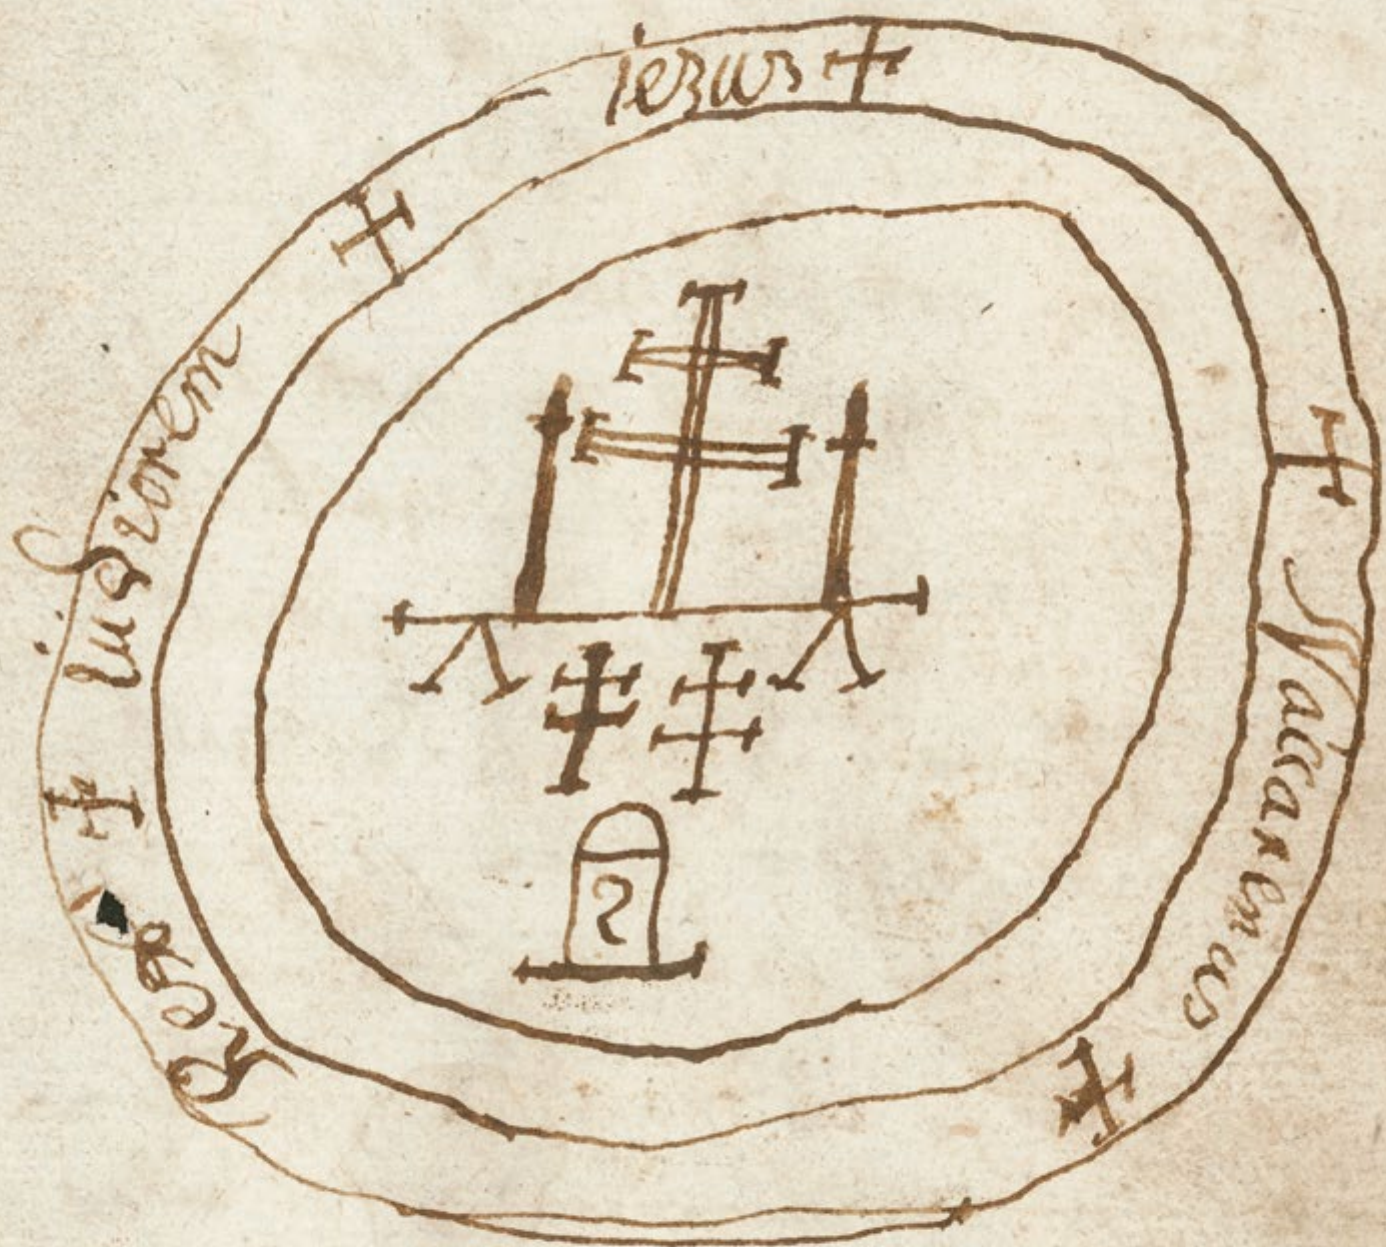 iezus +
+ Naccarenus +
Rex + iudiorem +
2